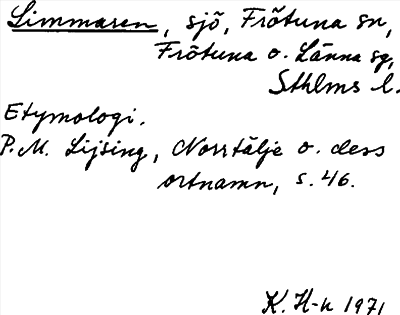 Limmaren, sjö, Frötuna sn,
Frötuna o. Länna sg,
Sthlms l.
Etymologi.
P.M. Lijsing, Norrtälje o. dess
ortnamn, s. 46.
K. H-n 1971